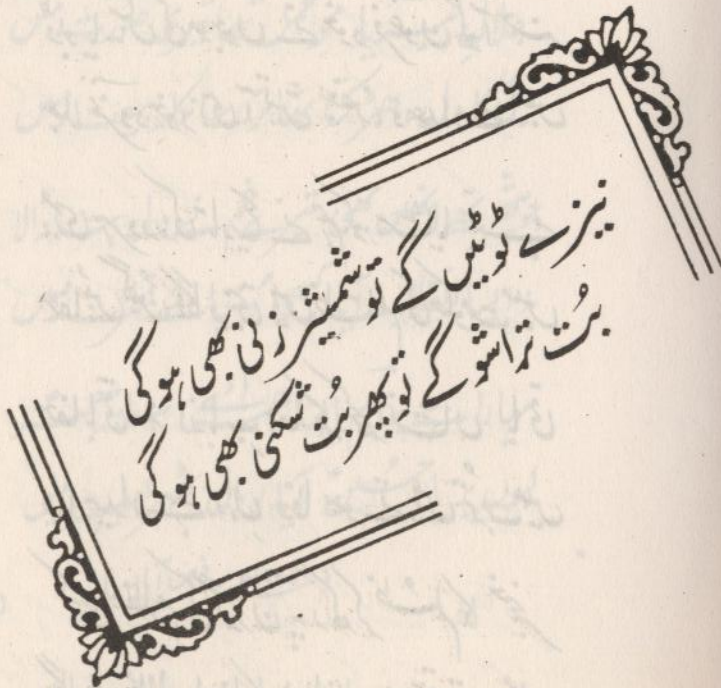 نیزے ٹوٹیں گے تو شمشیر زنی بھی ہوگی
بُت تراشو گے تو پھر بُت شکنی بھی ہوگی